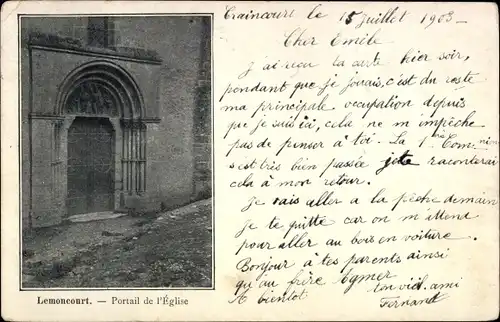 Craincourt le 15 Juillet 1903
Cher Emile
J'ai reçu la carte hier soir,
pendant que je jouais, c'est du reste
ma principale occupation depuis
que je suis ici, cela ne m'impêche
pas de penser à toi. La 1ère Communion
s'est très bien passée je te raconterai
cela à mon retour.
Je vais aller a la pêche demain
Je te quitte car on m'attend
pour aller au bois en voiture.
Bonjour à tes parents ainsi
qu'au frère
A bientôt ton vieil ami
Fernand
Lemoncourt. — Portail de l'Église